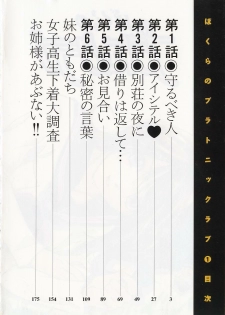 ぼくらのプラトニックラブ❶目次
第1話●守るべき人
3
第2話●アイシテル♥
27
第3話●別荘の夜に
49
第4話●借りは返して…
69
第5話●お見合い
89
第6話●秘密の言葉
109
妹のともだち
131
女子高生下着大調査
154
お姉様があぶない!!
175